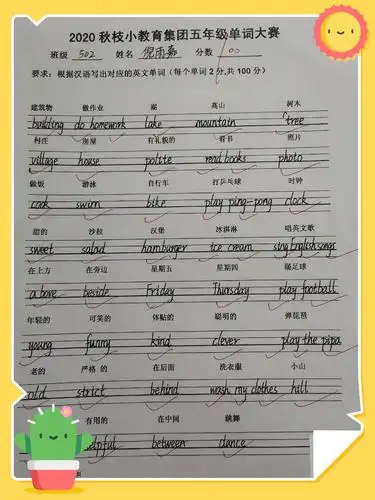 2020 秋枝小教育集团五年级单词大赛
班级 502 姓名 倪雨嘉 分数 100
要求：根据汉语写出对应的英文单词（每个单词 2 分,共 100 分）
建筑物 做作业 湖 高山 树木
building do homework lake mountain tree
村庄 房屋 有礼貌的 看书 照片
village house polite read books photo
做饭 游泳 自行车 打乒乓球 时钟
cook swim bike play ping-pong clock
甜的 沙拉 汉堡 冰淇淋 唱英文歌
sweet salad hamburger ice cream sing English songs
在上方 在旁边 星期五 星期四 踢足球
above beside Friday Thursday play football
年轻的 可笑的 体贴的 聪明的 弹琵琶
young funny kind clever play the pipa
老的 严格 的 在后面 洗衣服 小山
old strict behind wash my clothes hill
有用的 在中间 跳舞
helpful between dance